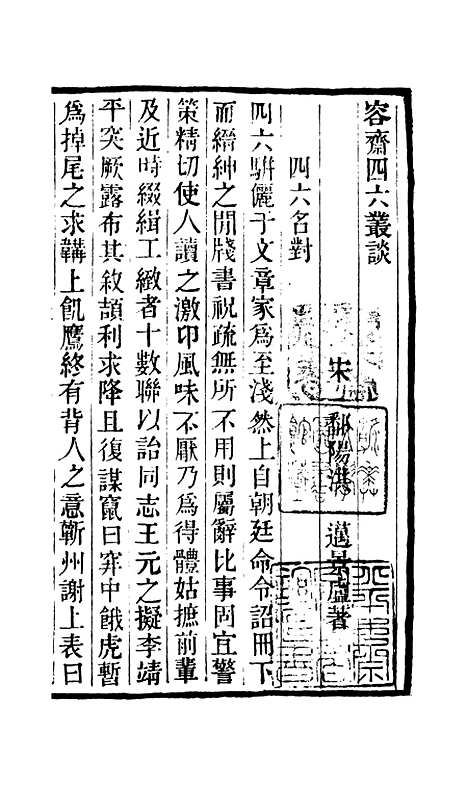 容齋四六叢談
宋 鄱陽洪 邁景盧著
四六名對
四六駢儷于文章家爲至淺然上自朝廷命令詔冊下
而縉紳之閒牋書祝疏無所不用則屬辭比事固宜警
策精切使人讀之激卬風味不厭乃爲得體姑摭前輩
及近時綴緝工緻者十數聯以詒同志王元之擬李靖
平突厥露布其敘頡利求降且復謀竄曰穽中餓虎暫
爲掉尾之求韝上飢鷹終有背人之意蘄州謝上表曰